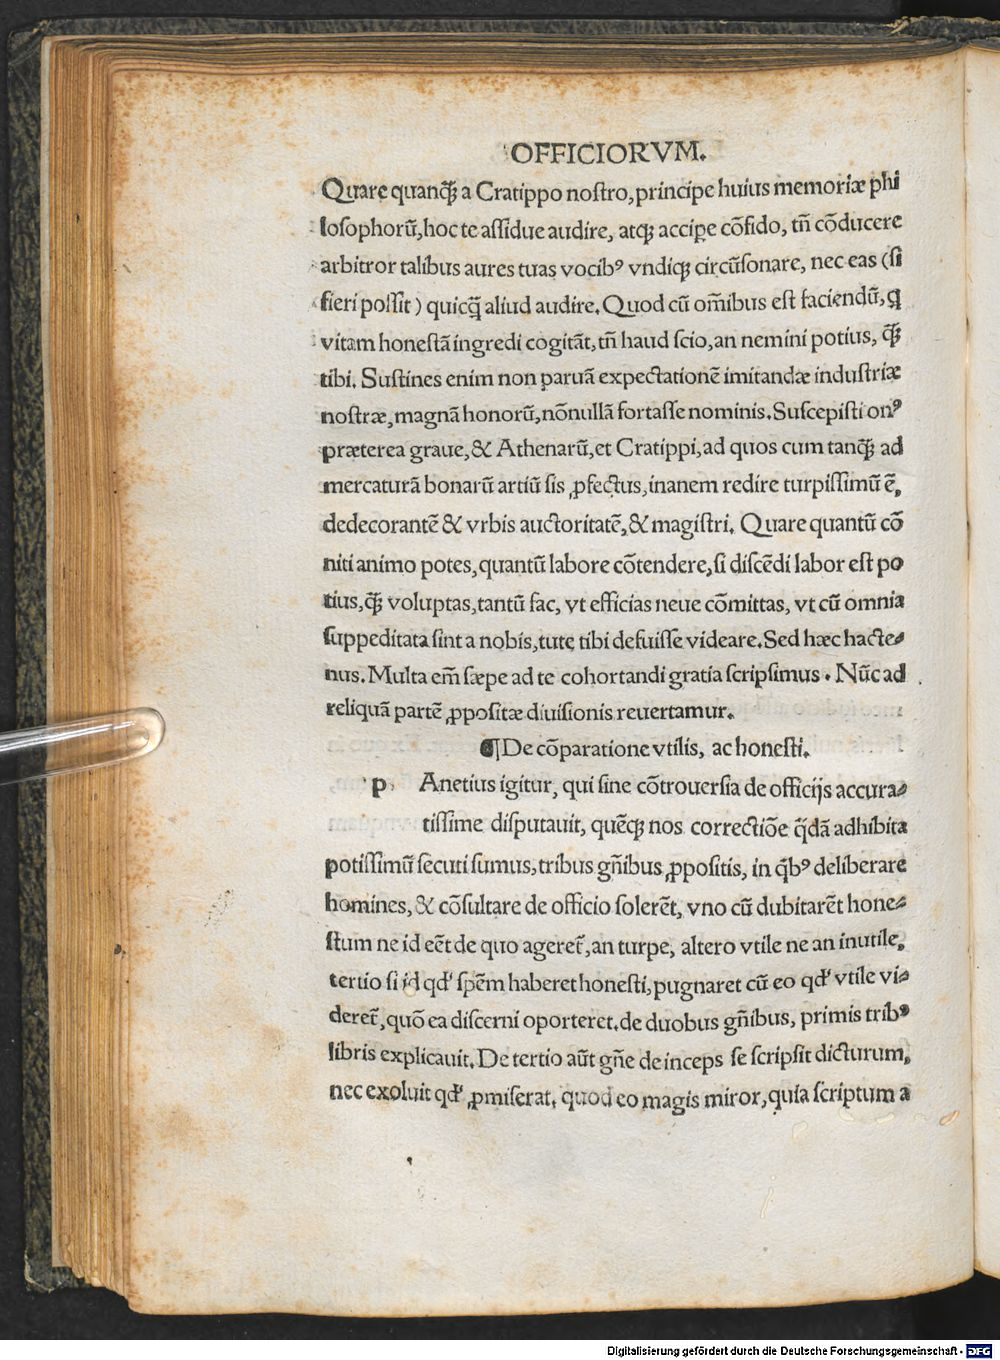 OFFICIORVM.
Quare quanꝗ̃ a Cratippo noſtro, principe huius memoriæ phi
loſophorũ, hoc te aſſidue audire, atqꝫ accipe cõfido, tñ cõducere
arbitror talibus aures tuas vocibꝰ vndiqꝫ circũſonare, nec eas (ſi
fieri poſſit) quicꝗ̃ aliud audire. Quod cũ om̃ibus eſt faciendũ, ꝗ
vitam honeſtã ingredi cogitãt, tñ haud ſcio, an nemini potius, ꝗ̃
tibi. Suſtines enim non paruã expectationẽ imitandæ induſtriæ
noſtræ, magnã honorũ, nõnullã fortaſſe nominis. Suſcepiſti onꝰ
præterea graue, & Athenarũ, et Cratippi, ad quos cum tanꝗ̃ ad
mercaturã bonarũ artiũ ſis ꝓfectus, inanem redire turpiſſimũ ẽ,
dedecorantẽ & vrbis auctoritatẽ, & magiſtri. Quare quantũ cõ
niti animo potes, quantũ labore cõtendere, ſi diſcẽdi labor eſt po
tius, ꝗ̃ voluptas, tantũ fac, vt efficias neue cõmittas, vt cũ omnia
ſuppeditata ſint a nobis, tute tibi defuiſſe videare. Sed hæc hacte⸗
nus. Multa em̃ ſæpe ad te cohortandi gratia ſcripſimus. Nũc ad
reliquã partẽ ꝓpoſitæ diuiſionis reuertamur.
¶ De cõparatione vtilis, ac honeſti.
p Anetius igitur, qui ſine cõtrouerſia de officijs accura⸗
tiſſime diſputauit, quẽqꝫ nos correctiõe q̃dã adhibita
potiſſimũ ſecuti ſumus, tribus gñibus ꝓpoſitis, in q̃bꝰ deliberare
homines, & cõſultare de officio ſolerẽt, vno cũ dubitarẽt hone⸗
ſtum ne id eẽt de quo ageret̃, an turpe, altero vtile ne an inutile,
tertio ſi id qđ ſpẽm haberet honeſti, pugnaret cũ eo qđ vtile vi⸗
deret̃, quõ ea diſcerni oporteret. de duobus gñibus, primis tribꝰ
libris explicauit. De tertio aũt gñe deinceps ſe ſcripſit dicturum,
nec exoluit qđ ꝓmiſerat. quod eo magis miror, quia ſcriptum a
Digitalisierung gefördert durch die Deutsche Forschungsgemeinschaft - DFG